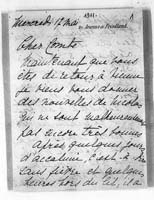 Mercredi 12 mai
1911
Cher Comte
Maintenant que vous
êtes de retour à Vienne
je viens vous donner
des nouvelles de Nicolas
qui ne sont malheureusement
pas encore très bonnes
Après quelques jours
d'accalmie, c'est à dire
sans fièvre et quelques
heures hors du lit, la